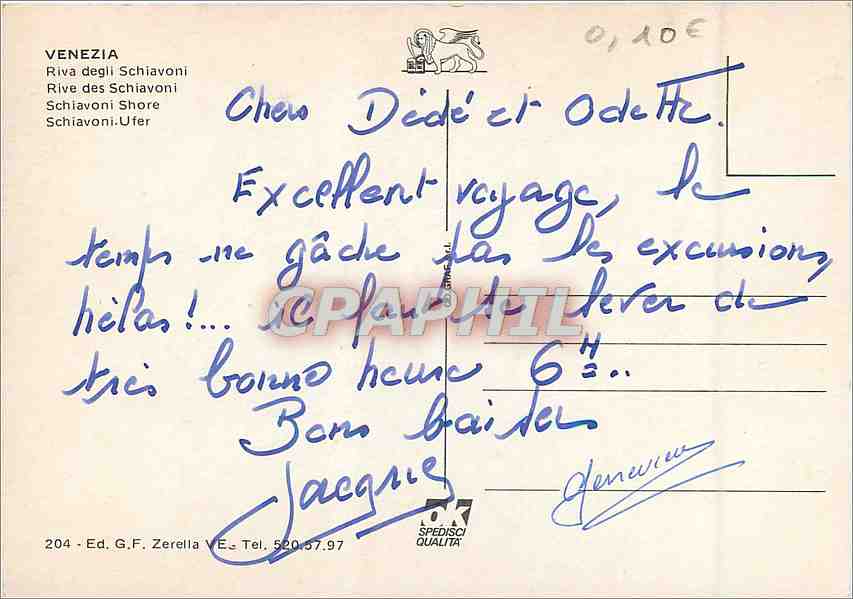 0,10€
VENEZIA
Riva degli Schiavoni
Rive des Schiavoni
Schiavoni Shore
Schiavoni-Ufer
Chers Dédé et Odette.
Excellent voyage, le
temps ne gâche pas les excursions,
hélas!... il faut se lever de
très bonne heure 6H..
Bons baisers
Jacques
Geneviève
CPAPHIL
OK
SPEDISCI
QUALITA'
204 - Ed. G.F. Zerella VE - Tel. 520.57.97